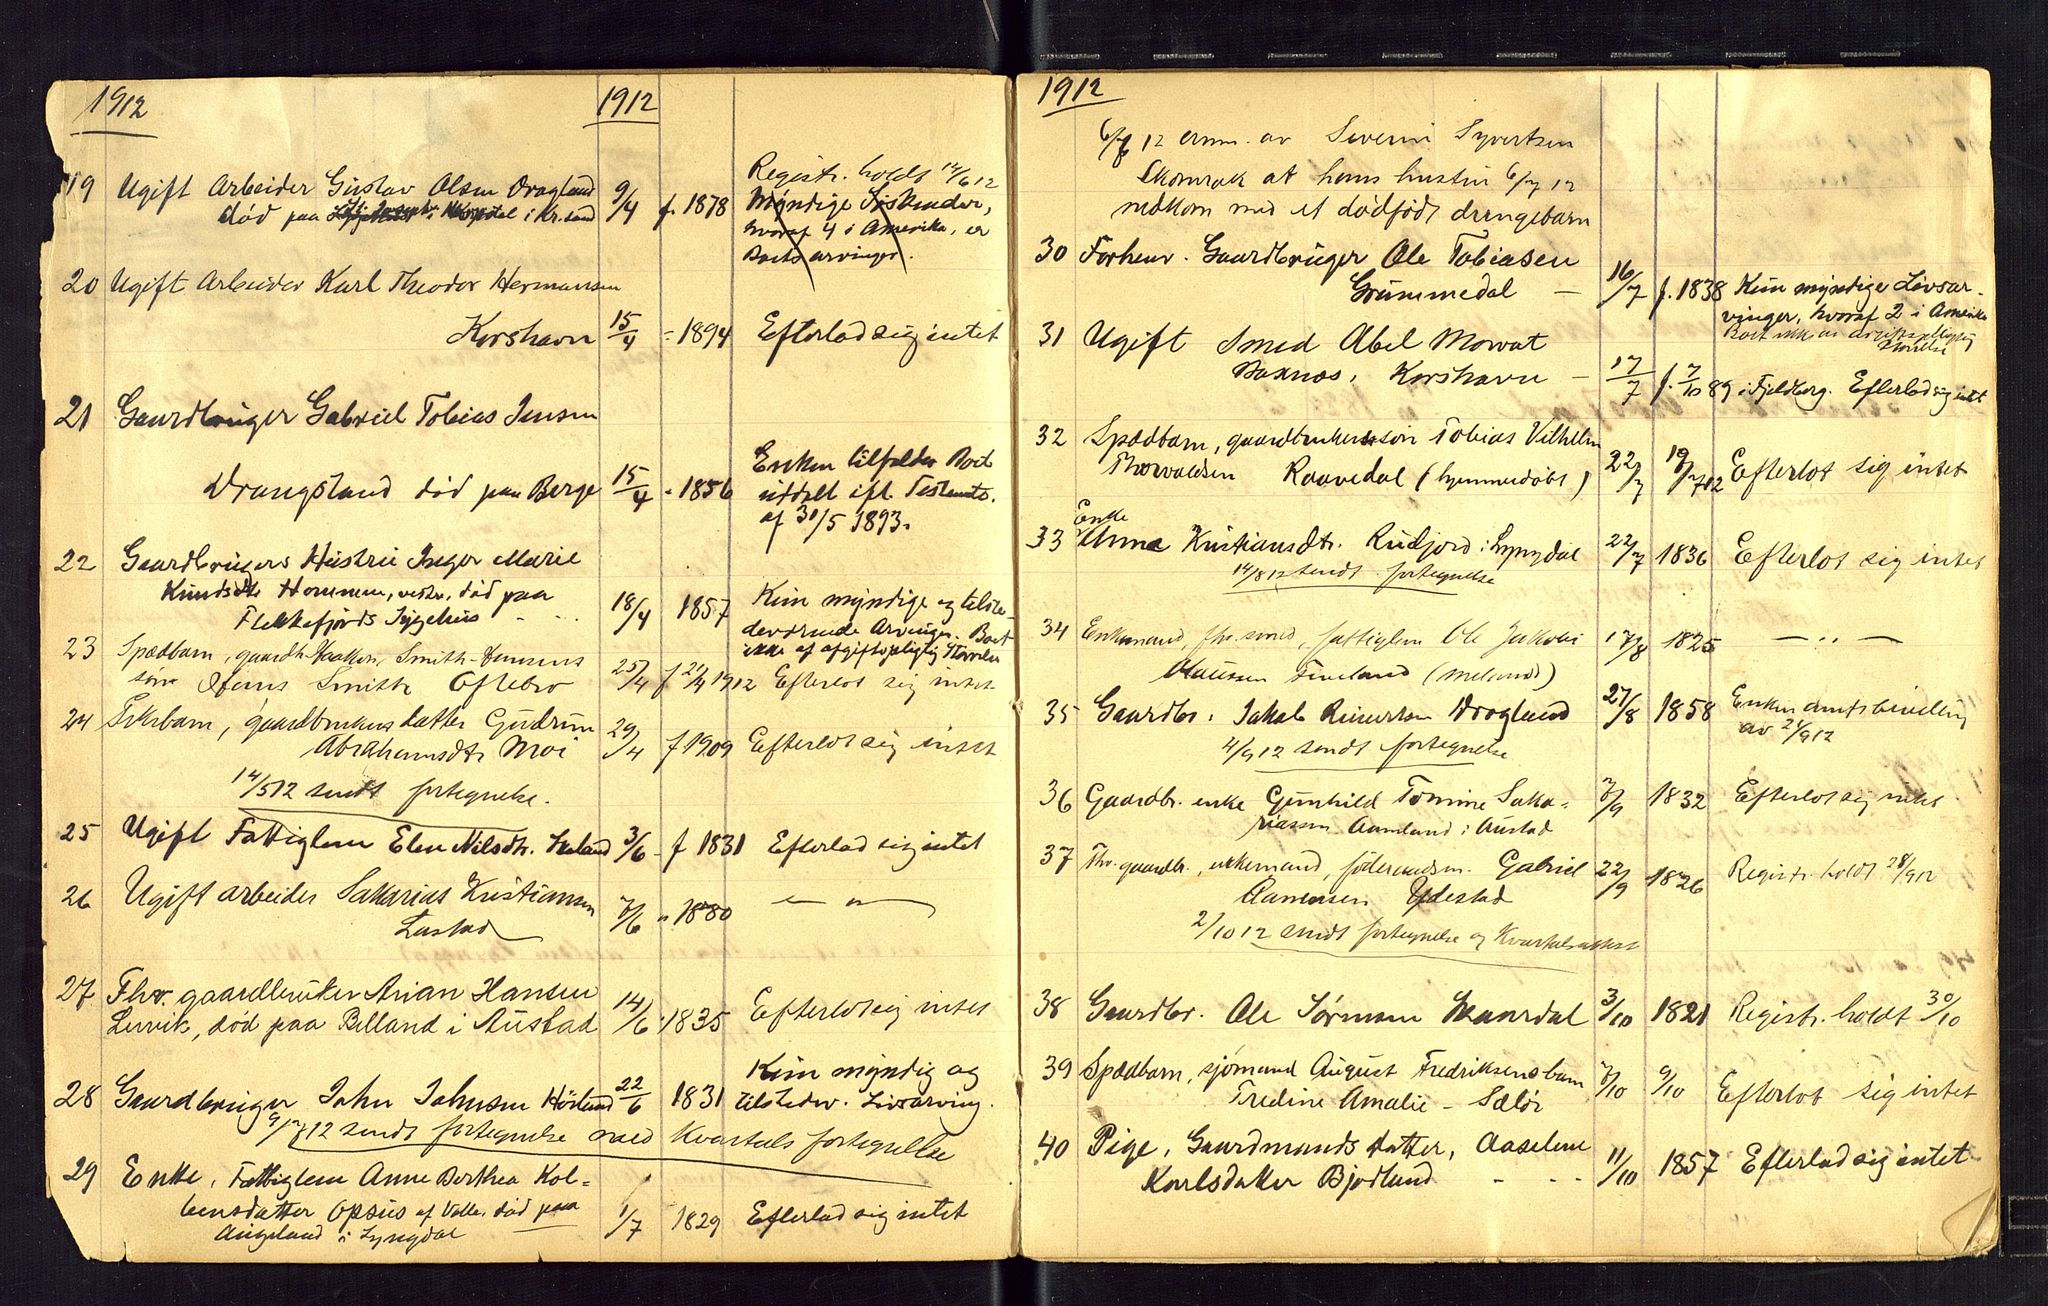 1912
1912
19 Ugift Arbeider Gustav Olsen Dragland 9/4 f. 1878 Registr. holdt 14/6 12
død paa Hospital i Kr.sand Myndige Søskender,
hvoraf 4 i Amerika, er
Boets arvinger.
20 Ugift Arbeider Karl Theodor Hermansen
Korshavn 15/4 = 1894 Efterlod sig intet
21 Gaardbruger Gabriel Tobias Jensen
Drangsland død paa Berge 15/4 " 1856 Enken tilfalder Boet
uddelt ifl. Testamte.
af 31/5 1893.
22 Gaardbrugers Hustru Inger Marie
Knudsdtr Hommen, vestre, død paa
Flekkefjords Sygehus - - 18/4 1857 Kun myndige og tilste-
deværende Arvinger. Boet
ikke af afgiftspligtig Størrelse
23 Spædbarn, gaardbr. Haakon Smith-Hansens
søn Hans Smith Oftebro 25/4 f 21/4 1912 Efterlot sig intet
24 Pikebarn, gaardbrukers datter Gudrun
Abrahamsdtr Moi 29/4 f 1909 Efterlot sig intet
14/5 12 sendt fortegnelse.
25 Ugift Fattiglem Elen Nilsdtr. 3/6 - f 1831 Efterlod sig intet
26 Ugift arbeider Sakarias Kristiansen
Lastad 7/6 " 1880 — " —
27 Fhv. gaardbruker Arian Hansen
Lervik, død paa Billand i Austad 14/6 1835 Efterlot sig intet
28 Gaardbruger John Johnsen Høiland 22/6 1831 Kun myndig og
tilstedev. Livsarving.
9/7 12 sendt fortegnelse med Kvartals fortegnelse
29 Enke, Fattiglem Anne Berthea Kol-
bensdatter Opsus af Valle, død paa
Augland i Lyngdal 1/7 1829 Efterlod sig intet
1912
6/8 12 anm. av Severin Syvertsen
Skomrak at hans hustru 6/7 12
nedkom med et dødfødt drengebarn
30 Forhenv. Gaardbruger Ole Tobiasen
Grummedal — 16/7 f. 1838 Kun myndige Livsar-
vinger, hvoraf 2 i Amerika
Boet ikke av avgiftspligtig
størrelse
31 Ugift Smed Abel Morvat
Baxnes, Korshavn — 17/7 f. 7/10 89 i Fjeldberg. Efterlod sig intet
32 Spædbarn, gaardbrukerssøn Tobias Vilhelm
Thorvaldsen Raavedal (hjemmedøbt) 22/7 19/7 12 Efterlot sig intet
Enke
33 Anna Kristiansdtr. Rudjord i Lyngdal 22/7 1836 Efterlot sig intet
14/8 12 sendt fortegnelse
34 Enkemand, fhv. smed, fattiglem Ole Jakob
Olaussen Fineland (meland) 17/8 1825 — " —
35 Gaardbr. Jakob Reinertsen Dragland 27/8 1858 Enken amtsbevilling
av 21/9 12
4/9 12 sendt fortegnelse
36 Gaardbr. enke Gunhild Tomine Saka-
riassen Aamland i Austad 7/9 1832 Efterlot sig intet
37 Fhv. gaardbr., enkemand, føderaadsm. Gabriel
Aanensen Ydestad 22/9 1826 Registr. holdt 28/9 12
2/10 12 sendt fortegnelse og Kvartalsattest
38 Gaardbr. Ole Tørresen Haardal 3/10 1821 Registr. holdt 30/10
39 Spædbarn, sjømand August Fredriksens barn
Fredine Amalie - Sælør 7/10 9/10 Efterlot sig intet
40 Pige, Gaardmands datter, Aaselene
Karlsdatter Bjødland - - - 11/10 1857 Efterlod sig intet